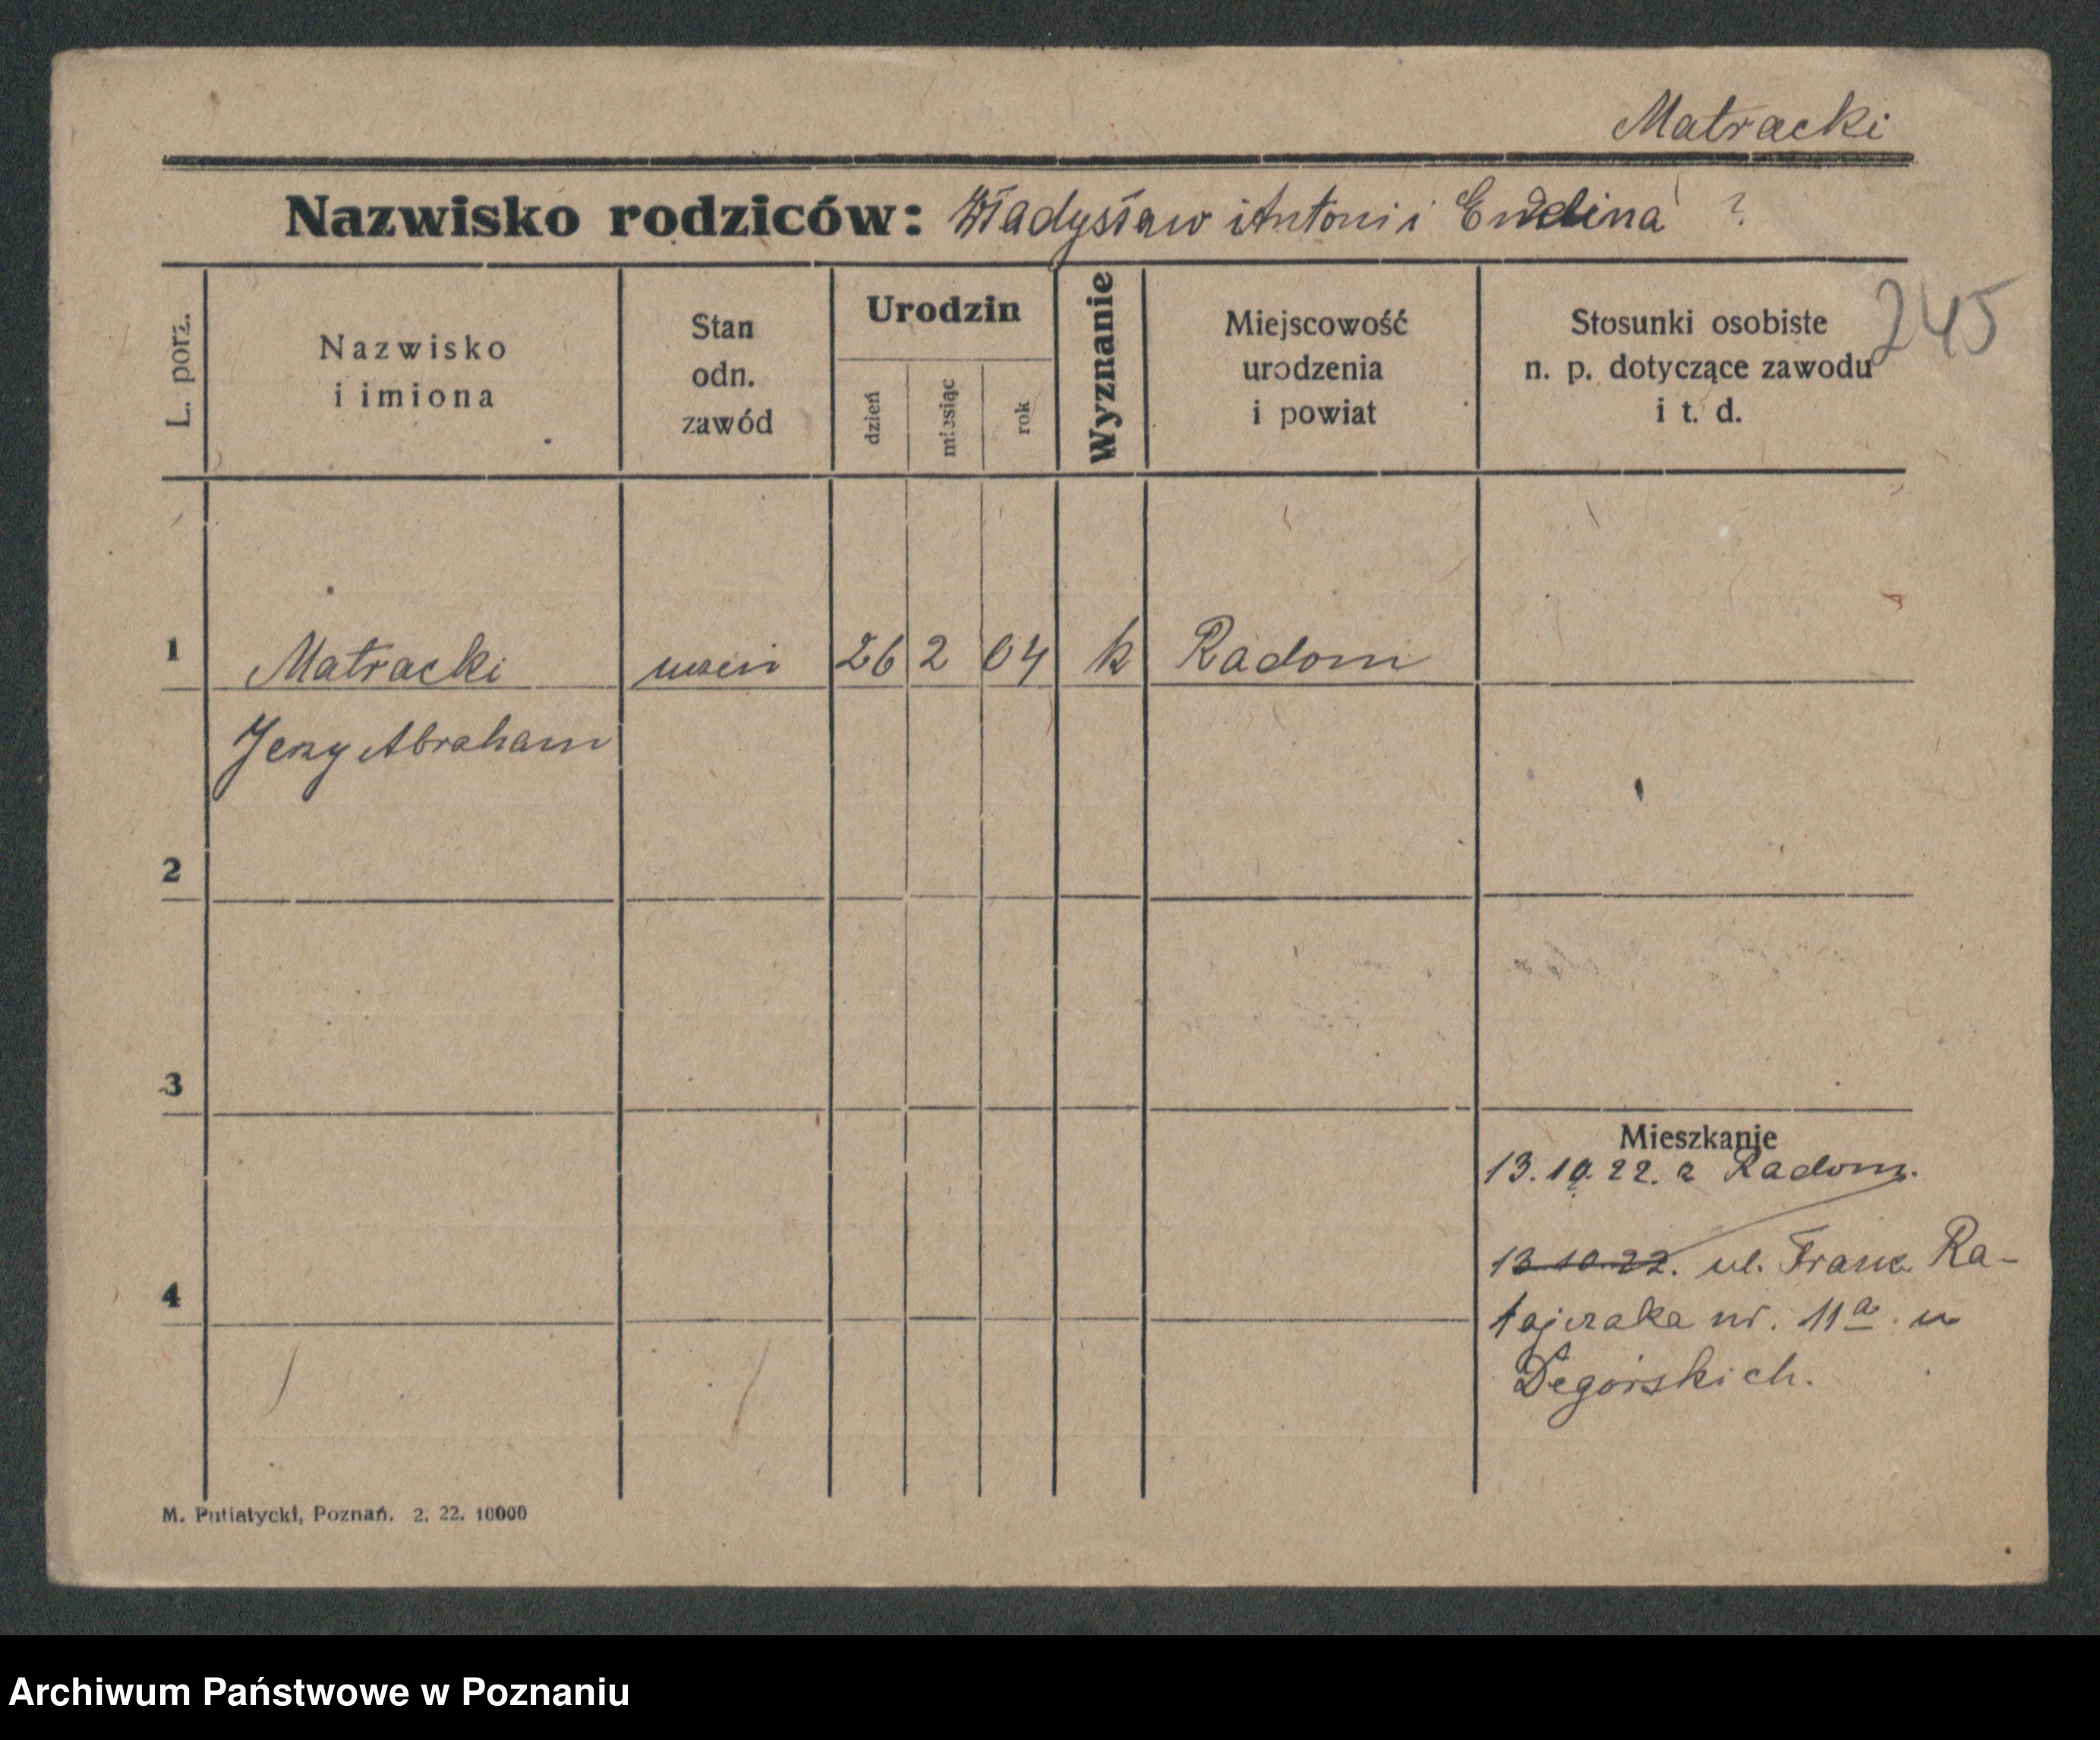 Matracki
Nazwisko rodziców: Władysław i Antonii Ewelina ?
L. porz.
Nazwisko
i imiona
Stan
odn.
zawód
Urodzin
dzień
miesiąc
rok
Wyznanie
Miejscowość
urodzenia
i powiat
Stosunki osobiste
n. p. dotyczące zawodu
i t. d.
245
1 Matracki uczeń 26 2 04 k Radom
Jerzy Abraham
2
3
Mieszkanie
13.10.22. z Radom.
13.10.22. ul. Franc. Ra-
4 tajczaka nr. 11a. u
Degórskich.
M. Putiatycki, Poznań. 2. 22. 10000
Archiwum Państwowe w Poznaniu